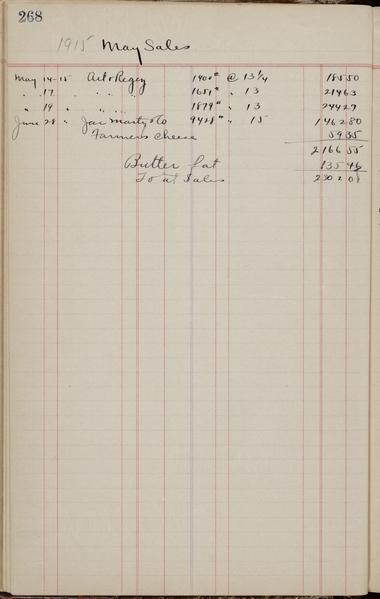 268
1915 May Sales
May 14-15 Art & Regez 1400# @ 13 1/4 185 50
" 17 " " " 1651# " 13 214 63
" 19 " " " 1879# " 13 244 27
June 28 " Jac Marty & Co 9428# " 15 1462 80
Farmers Cheese 59 35
2166 55
Butter fat 135 46
Total Sales 2302 01